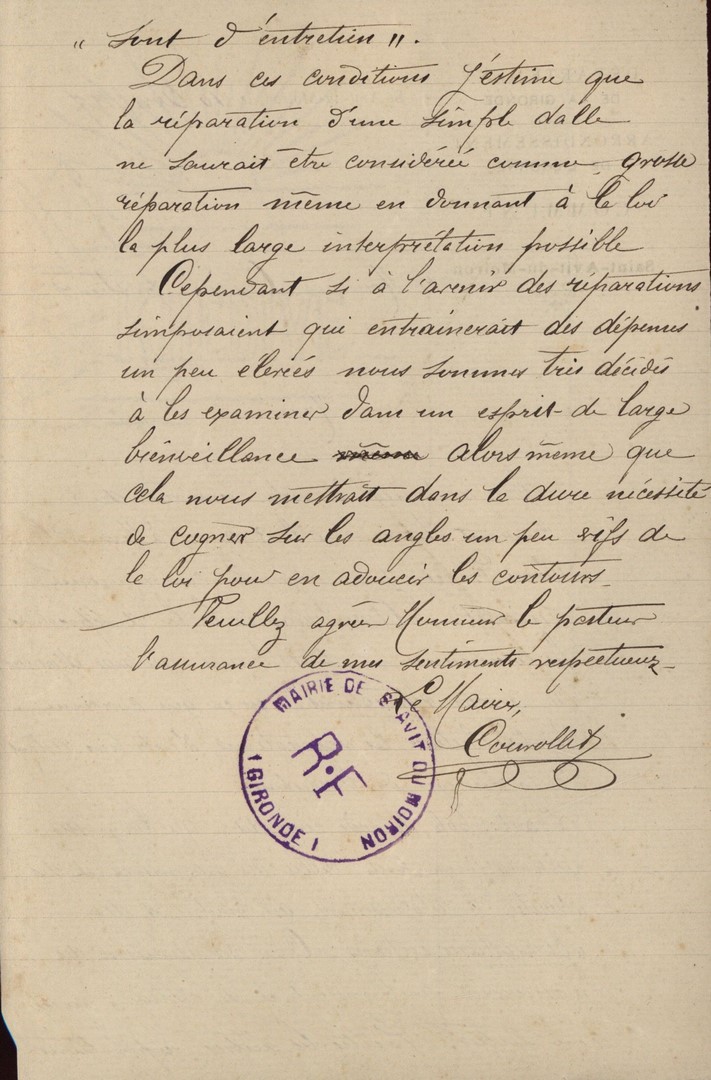 " sont d'entretien ".
Dans ces conditions j'estime que
la réparation d'une simple dalle
ne saurait être considérée comme grosse
réparation même en donnant à la loi
la plus large interprétation possible
Cependant si à l'avenir des réparations
s'imposaient qui entrainerait des dépenses
un peu élevées nous sommes très décidés
à les examiner dans un esprit de large
bienveillance même alors même que
cela nous mettrait dans la dure nécessité
de cogner sur les angles un peu vifs de
la loi pour en adoucir les contours_
Veuillez agréer Monsieur le pasteur
l'assurance de mes sentiments respectueux_
Le Maire,
MAIRIE DE St AVIT DU MOIRON
R.F
(GIRONDE)